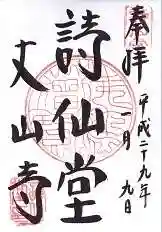 奉拝
平成二十九年
一月 九日
詩仙堂
丈山寺